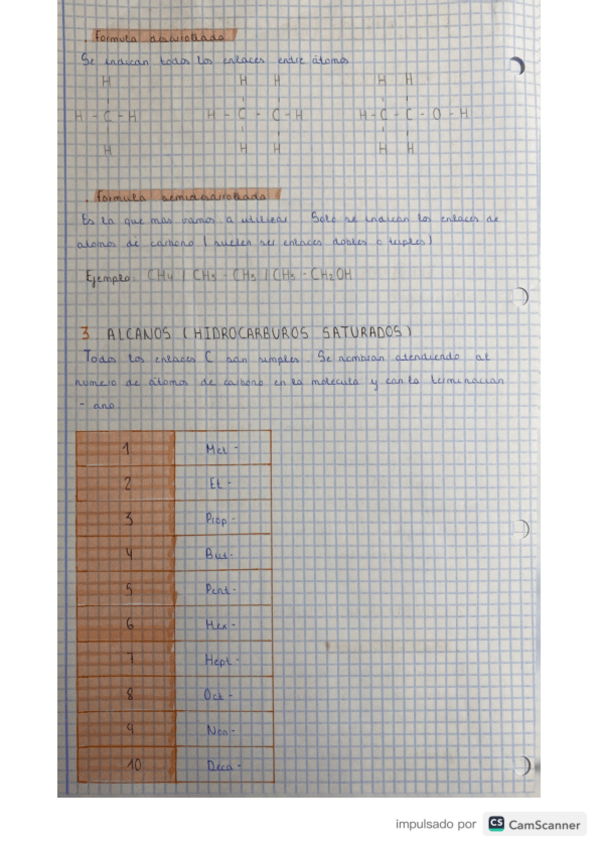 . Formula desarrollada
Se indican todos los enlaces entre átomos
H H H H H
H - C - H H - C - C - H H - C - C - O - H
H H H H H
. Formula semidesarrollada
Es la que mas vamos a utilizar Solo se indican los enlaces de
atomos de carbono (suelen ser enlaces dobles o triples)
Ejemplo: CH4 / CH3 - CH3 / CH3 - CH2OH
3 ALCANOS (HIDROCARBUROS SATURADOS)
Todos los enlaces C son simples. Se nombran atendiendo al
numero de átomos de carbono en la molecula y con la terminacion
- ano
1 Met -
2 Et -
3 Prop -
4 But -
5 Pent -
6 Hex -
7 Hept -
8 Oct -
9 Non -
10 Deca -
impulsado por CS CamScanner